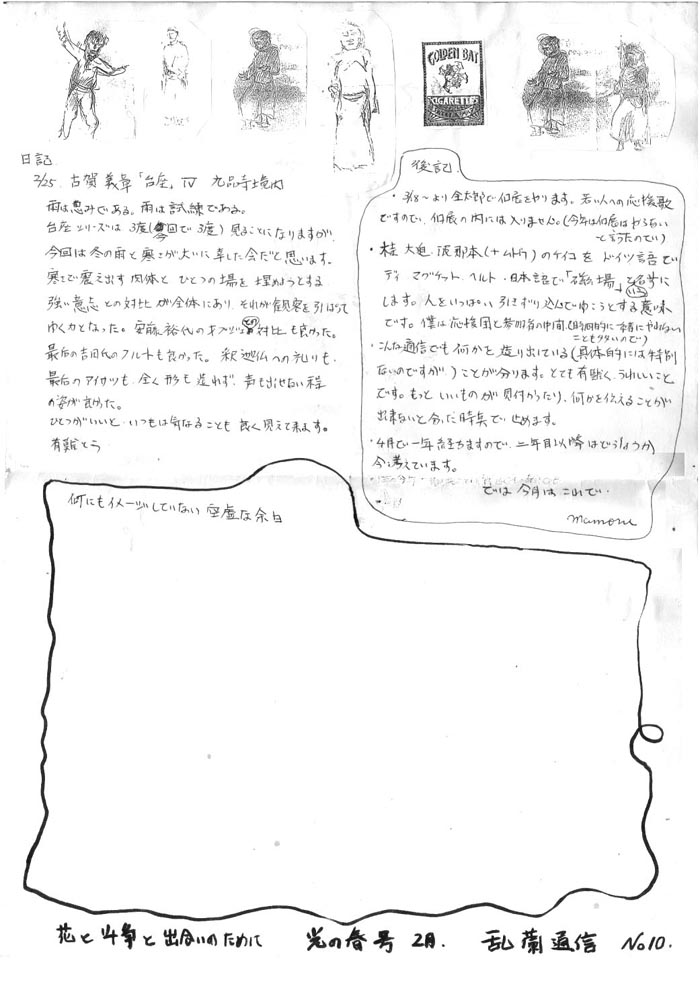 GOLDEN BAT
CIGARETTES
日記
2/25. 古賀 義章「台座」Ⅳ 九品寺境内
雨は恵みである。雨は試練である。
台座シリーズは3度(今回で3度)見ることになりますが、
今回は冬の雨と寒さが大いに幸した会だと思います。
寒さで震え出す肉体と ひとつの場を埋めようとする
強い意志との対比が全体にあり、それが観客を引っぱって
ゆく力となった。安藤裕代の との対比も良かった。
最後の吉田氏のフルートも良かった。釈迦仏への礼りも、
最后のアイサツも、全く形も造れず、声も出せない程
の姿が良かった。
ひとつがいいと、いつもは気なることも 良く見えて来ます。
有難とう
後記.
・3/8〜より金太郎で個展をやります。若い人への応援歌
ですので、個展の内には入りません。(今年は個展はやらない
と言ったので)
・桂 大迫 (+ムトウ)のケイコを ドイツ語で
ディ マグケット ヘルト・日本語で「磁場」という名前に
します。人をいっぱい引きずり込んでゆこうとする意味
です。僕は応援団と参加者の中間(時間的に
こともタないので)
・こんな通信でも何かを造り出している(具体的には特別
ないのですが)ことが分ります。とても有難く、うれしいこと
です。もっといいものが見付かったり、何かを伝えることが
出来ないと合った時点で止めます。
・4月で一年経ちますので、二年目以降はどうしようか
今考えています。
では今月はこれで.
mamoru
何にもイメージしていない空虚な余白
花と斗争と出合いのために 光の春号 2月. 乱蘭通信 No10.